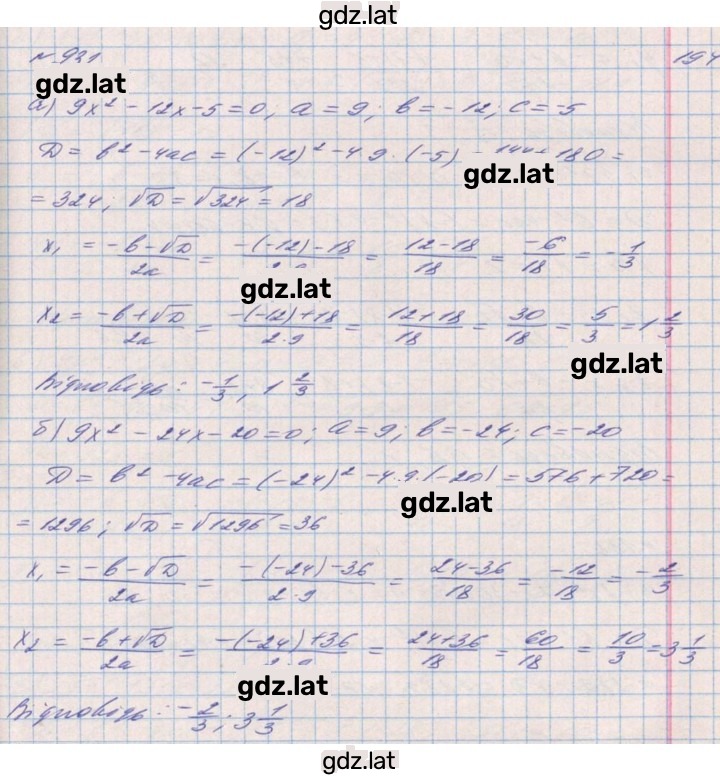 gdz.lat
№ 921 194
gdz.lat
а) 9x² - 12x - 5 = 0; a = 9; b = -12; c = -5
D = b² - 4ac = (-12)² - 4·9·(-5) = 144 + 180 =
gdz.lat
= 324; √D = √324 = 18
x₁ = (-b - √D)/2a = (-(-12) - 18)/2·9 = (12 - 18)/18 = -6/18 = -1/3
gdz.lat
x₂ = (-b + √D)/2a = (-(-12) + 18)/2·9 = (12 + 18)/18 = 30/18 = 5/3 = 1 2/3
gdz.lat
Відповідь: -1/3, 1 2/3
б) 9x² - 24x - 20 = 0; a = 9; b = -24; c = -20
D = b² - 4ac = (-24)² - 4·9·(-20) = 576 + 720 =
gdz.lat
= 1296; √D = √1296 = 36
x₁ = (-b - √D)/2a = (-(-24) - 36)/2·9 = (24 - 36)/18 = -12/18 = -2/3
x₂ = (-b + √D)/2a = (-(-24) + 36)/2·9 = (24 + 36)/18 = 60/18 = 10/3 = 3 1/3
gdz.lat
Відповідь: -2/3; 3 1/3
gdz.lat